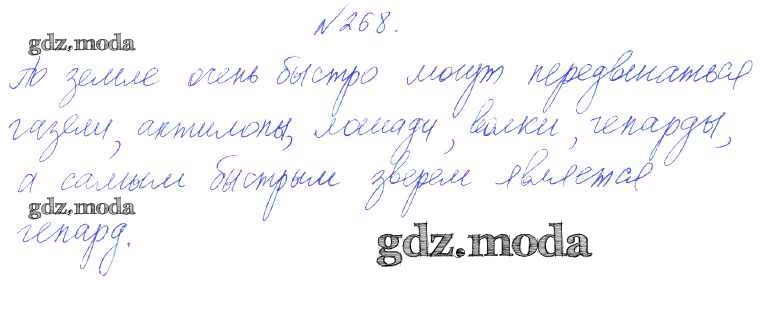 №268.
gdz.moda
По земле очень быстро могут передвигаться
газели, антилопы, лошади, волки, гепарды,
а самым быстрым зверем является
gdz.moda
гепард.
gdz.moda